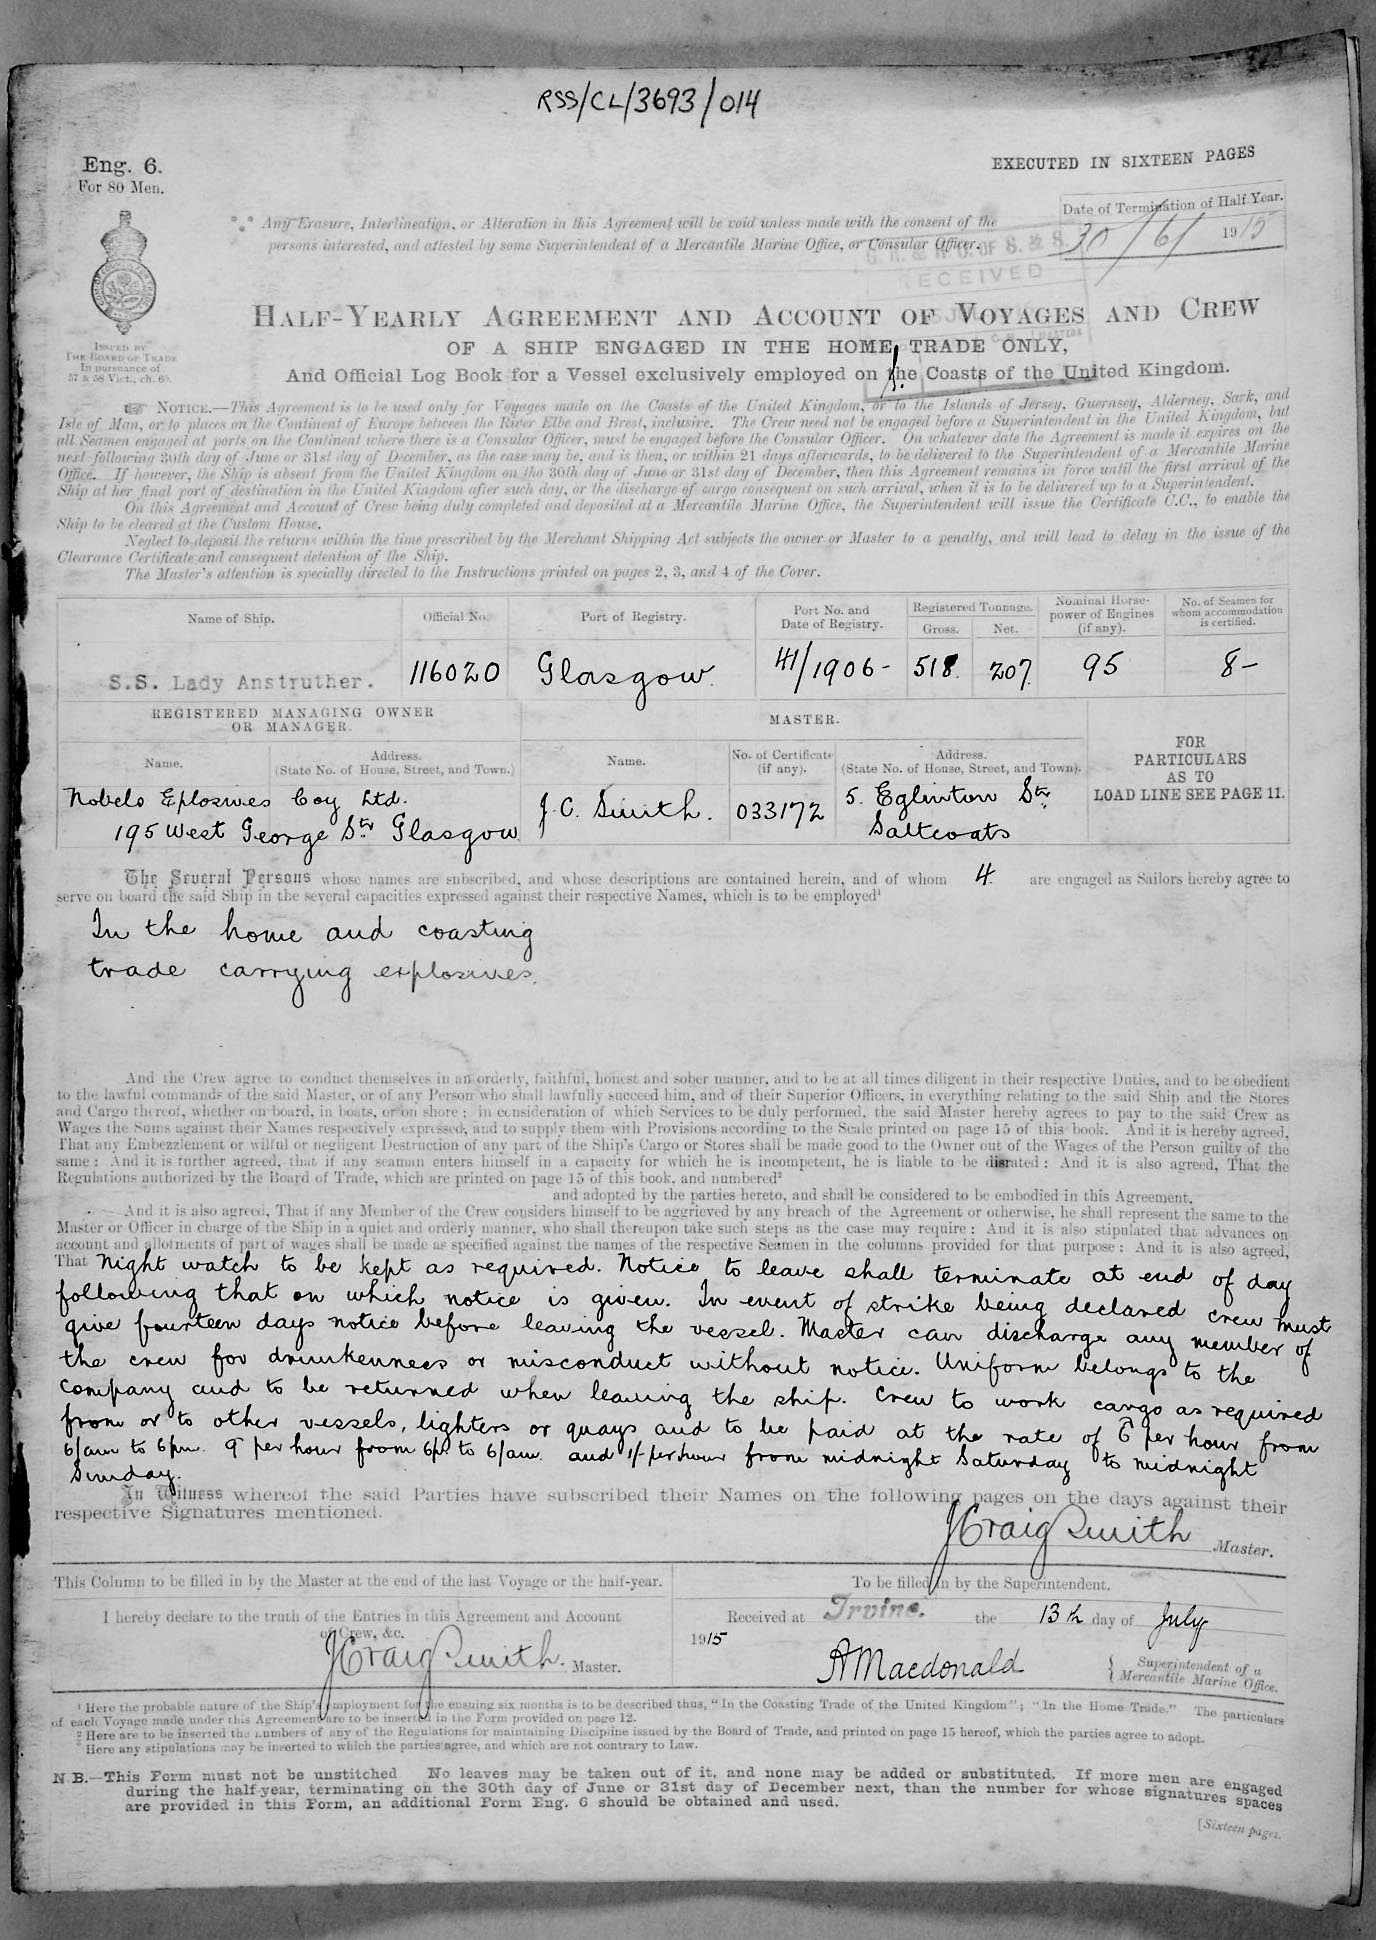 RSS/CL/3693/014
Eng. 6.
For 80 Men.
EXECUTED IN SIXTEEN PAGES
Date of Termination of Half Year.
30/6/ 1915
Any Erasure, Interlineation, or Alteration in this Agreement will be void unless made with the consent of the
persons interested, and attested by some Superintendent of a Mercantile Marine Office, or Consular Officer.
RECEIVED
HALF-YEARLY AGREEMENT AND ACCOUNT OF VOYAGES AND CREW
OF A SHIP ENGAGED IN THE HOME TRADE ONLY,
And Official Log Book for a Vessel exclusively employed on the Coasts of the United Kingdom.
ISSUED BY
THE BOARD OF TRADE
In pursuance of
57 & 58 Vict., ch. 60.
NOTICE.—This Agreement is to be used only for Voyages made on the Coasts of the United Kingdom, or to the Islands of Jersey, Guernsey, Alderney, Sark, and
Isle of Man, or to places on the Continent of Europe between the River Elbe and Brest, inclusive. The Crew need not be engaged before a Superintendent in the United Kingdom, but
all Seamen engaged at ports on the Continent where there is a Consular Officer, must be engaged before the Consular Officer. On whatever date the Agreement is made it expires on the
next following 30th day of June or 31st day of December, as the case may be, and is then, or within 21 days afterwards, to be delivered to the Superintendent of a Mercantile Marine
Office. If however, the Ship is absent from the United Kingdom on the 30th day of June or 31st day of December, then this Agreement remains in force until the first arrival of the
Ship at her final port of destination in the United Kingdom after such day, or the discharge of cargo consequent on such arrival, when it is to be delivered up to a Superintendent.
On this Agreement and Account of Crew being duly completed and deposited at a Mercantile Marine Office, the Superintendent will issue the Certificate C.C., to enable the
Ship to be cleared at the Custom House.
Neglect to deposit the returns within the time prescribed by the Merchant Shipping Act subjects the owner or Master to a penalty, and will lead to delay in the issue of the
Clearance Certificate and consequent detention of the Ship.
The Master's attention is specially directed to the Instructions printed on pages 2, 3, and 4 of the Cover.
Name of Ship. Official No. Port of Registry. Port No. and Date of Registry. Registered Tonnage. Gross. Net. Nominal Horse-power of Engines (if any). No. of Seamen for whom accommodation is certified.
S.S. Lady Anstruther. 116020 Glasgow. 41/1906- 518. 207. 95 8-
REGISTERED MANAGING OWNER
OR MANAGER.
MASTER.
FOR
PARTICULARS
AS TO
LOAD LINE SEE PAGE 11.
Name. Address. (State No. of House, Street, and Town.) Name. No. of Certificate (if any). Address. (State No. of House, Street, and Town).
Nobels Eplosives Coy Ltd.
195 West George Str Glasgow
J. C. Smith. 033172
5. Eglinton Str.
Saltcoats
The Several Persons whose names are subscribed, and whose descriptions are contained herein, and of whom 4. are engaged as Sailors hereby agree to
serve on board the said Ship in the several capacities expressed against their respective Names, which is to be employed¹
In the home and coasting
trade carrying explosives.
And the Crew agree to conduct themselves in an orderly, faithful, honest and sober manner, and to be at all times diligent in their respective Duties, and to be obedient
to the lawful commands of the said Master, or of any Person who shall lawfully succeed him, and of their Superior Officers, in everything relating to the said Ship and the Stores
and Cargo thereof, whether on board, in boats, or on shore; in consideration of which Services to be duly performed, the said Master hereby agrees to pay to the said Crew as
Wages the Sums against their Names respectively expressed, and to supply them with Provisions according to the Scale printed on page 15 of this book. And it is hereby agreed,
That any Embezzlement or wilful or negligent Destruction of any part of the Ship's Cargo or Stores shall be made good to the Owner out of the Wages of the Person guilty of the
same: And it is further agreed, that if any seaman enters himself in a capacity for which he is incompetent, he is liable to be disrated: And it is also agreed, That the
Regulations authorized by the Board of Trade, which are printed on page 15 of this book, and numbered²
and adopted by the parties hereto, and shall be considered to be embodied in this Agreement.
And it is also agreed, That if any Member of the Crew considers himself to be aggrieved by any breach of the Agreement or otherwise, he shall represent the same to the
Master or Officer in charge of the Ship in a quiet and orderly manner, who shall thereupon take such steps as the case may require: And it is also stipulated that advances on
account and allotments of part of wages shall be made as specified against the names of the respective Seamen in the columns provided for that purpose: And it is also agreed,
That Night watch to be kept as required. Notice to leave shall terminate at end of day
following that on which notice is given. In event of strike being declared crew must
give fourteen days notice before leaving the vessel. Master can discharge any member of
the crew for drunkenness or misconduct without notice. Uniform belongs to the
company and to be returned when leaving the ship. Crew to work cargo as required
from or to other vessels, lighters or quays and to be paid at the rate of 6d per hour from
6/am to 6pm. 9d per hour from 6pm to 6/am. and 1/- per hour from midnight Saturday to midnight
Sunday.
In Witness whereof the said Parties have subscribed their Names on the following pages on the days against their
respective Signatures mentioned.
J Craig Smith Master.
This Column to be filled in by the Master at the end of the last Voyage or the half-year.
I hereby declare to the truth of the Entries in this Agreement and Account
of Crew, &c.
J Craig Smith. Master.
To be filled in by the Superintendent.
Received at Irvine. the 13th day of July
1915
A Macdonald
Superintendent of a
Mercantile Marine Office.
¹ Here the probable nature of the Ship's employment for the ensuing six months is to be described thus, "In the Coasting Trade of the United Kingdom"; "In the Home Trade." The particulars
of each Voyage made under this Agreement are to be inserted in the Form provided on page 12.
² Here are to be inserted the numbers of any of the Regulations for maintaining Discipline issued by the Board of Trade, and printed on page 15 hereof, which the parties agree to adopt.
³ Here any stipulations may be inserted to which the parties agree, and which are not contrary to Law.
N.B.—This Form must not be unstitched No leaves may be taken out of it, and none may be added or substituted. If more men are engaged
during the half-year, terminating on the 30th day of June or 31st day of December next, than the number for whose signatures spaces
are provided in this Form, an additional Form Eng. 6 should be obtained and used.
[Sixteen pages.